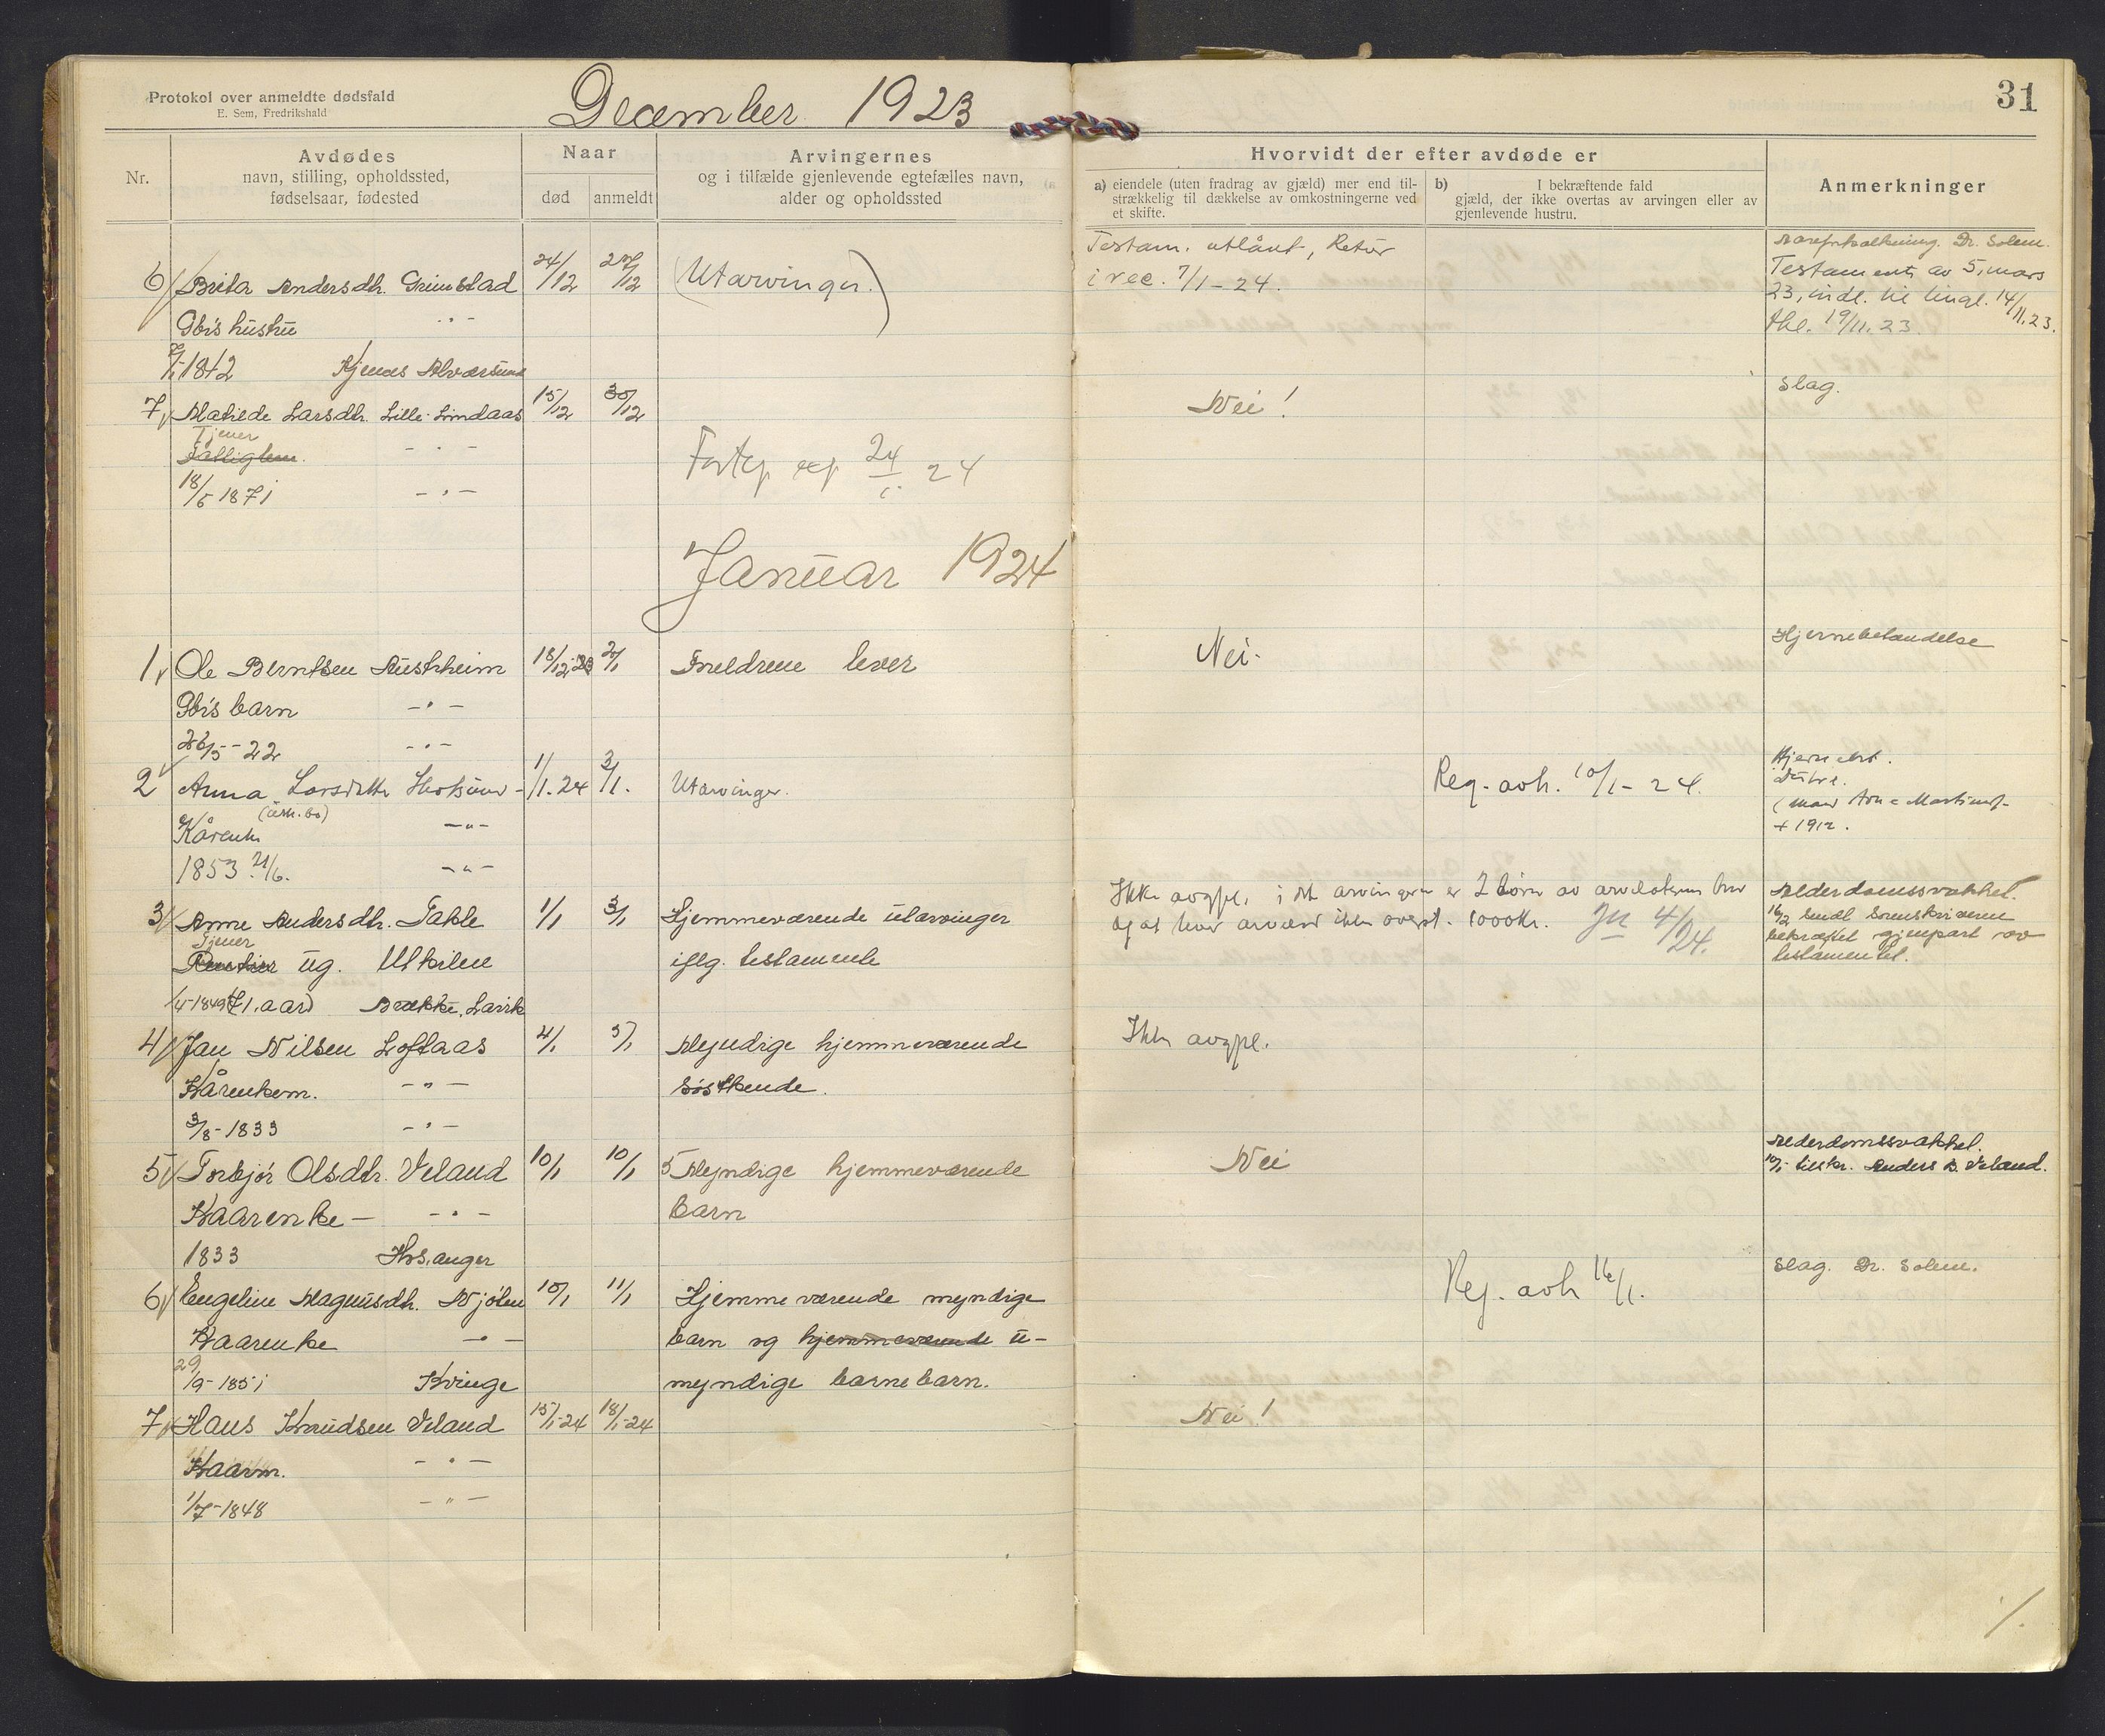 Protokol over anmeldte dødsfald
E. Sem, Fredrikshald
December 1923
31
Nr.
Avdødes
navn, stilling, opholdssted,
fødselsaar, fødested
Naar
død
anmeldt
Arvingernes
og i tilfælde gjenlevende egtefælles navn,
alder og opholdssted
Hvorvidt der efter avdøde er
a) eiendele (uten fradrag av gjæld) mer end til-
strækkelig til dækkelse av omkostningerne ved
et skifte.
b) I bekræftende fald
gjæld, der ikke overtas av arvingen eller av
gjenlevende hustru.
Anmerkninger
6 Brita Andersdtr. Grimstad 24/12 27/12 (Utarvinger.) Testam. utlånt, Retur
i rec. 7/1-24.
Dr. Solem.
Testament av 5, mars
23, indl. til tingl. 14/11.23.
thl. 19/11.23.
Gbr's hustru -"-
1842 Alversund
7 Matilde Larsdtr. Lille-Lindaas 15/12 30/12 Nei! Slag.
Tjener
Fattiglem. -"-
18/5 1871 -"-
24/1. 24
Januar 1924
1 Ole Berntsen Austrheim 18/12-23 2/1 Foreldrene lever Nei. Hjernebetændelse
Gbr's barn -"-
26/5-22 -"-
2 Anna Larsdtr 1/1.24 3/1. Utarvinger. Reg. avh. 10/1-24.
+ 1912.
Kårenke -"-
1853 21/6. -"-
3 Anne Andersdtr. Takle 1/1 3/1 Hjemmeværende utarvinger
iflg. testamente
Ikke avgpl. i det arvingerne er 2 børn av
og at hver ikke overst. 1000 kr. 4/1 24.
Alderdomssvakhet.
16/2 sendt Sorenskriveren
bekræftet gjenpart av
testamentet.
Tjener
Rentier ug. Utkilen
1/4-1849 (71. aar) Brække, Lavik
4 Jan Nilsen Loftaas 4/1 5/1 Myndige hjemmeværende
søskende.
Ikke avgpl.
Kårenkem. -"-
3/8-1833 -"-
5 Torbjør Olsdtr. Veland 10/1 10/1 5 Myndige hjemmeværende
barn
Nei
Alderdomssvakhet.
10/1 tilskr. Anders B. Veland.
Kaarenke- -"-
1833 Hosanger
6 Engeline Magnusdtr. Mjølen 10/1 11/1 Hjemmeværende myndige
barn og hjemmeværende u-
myndige barnebarn.
Reg. avh 16/1.
Slag. Dr. Solem.
Kaarenke -"-
29/9-1851 Kvinge
7 Hans Knudsen Veland 15/1-24 18/1-24 Nei!
Kaarm. -"-
1/7-1848 -"-